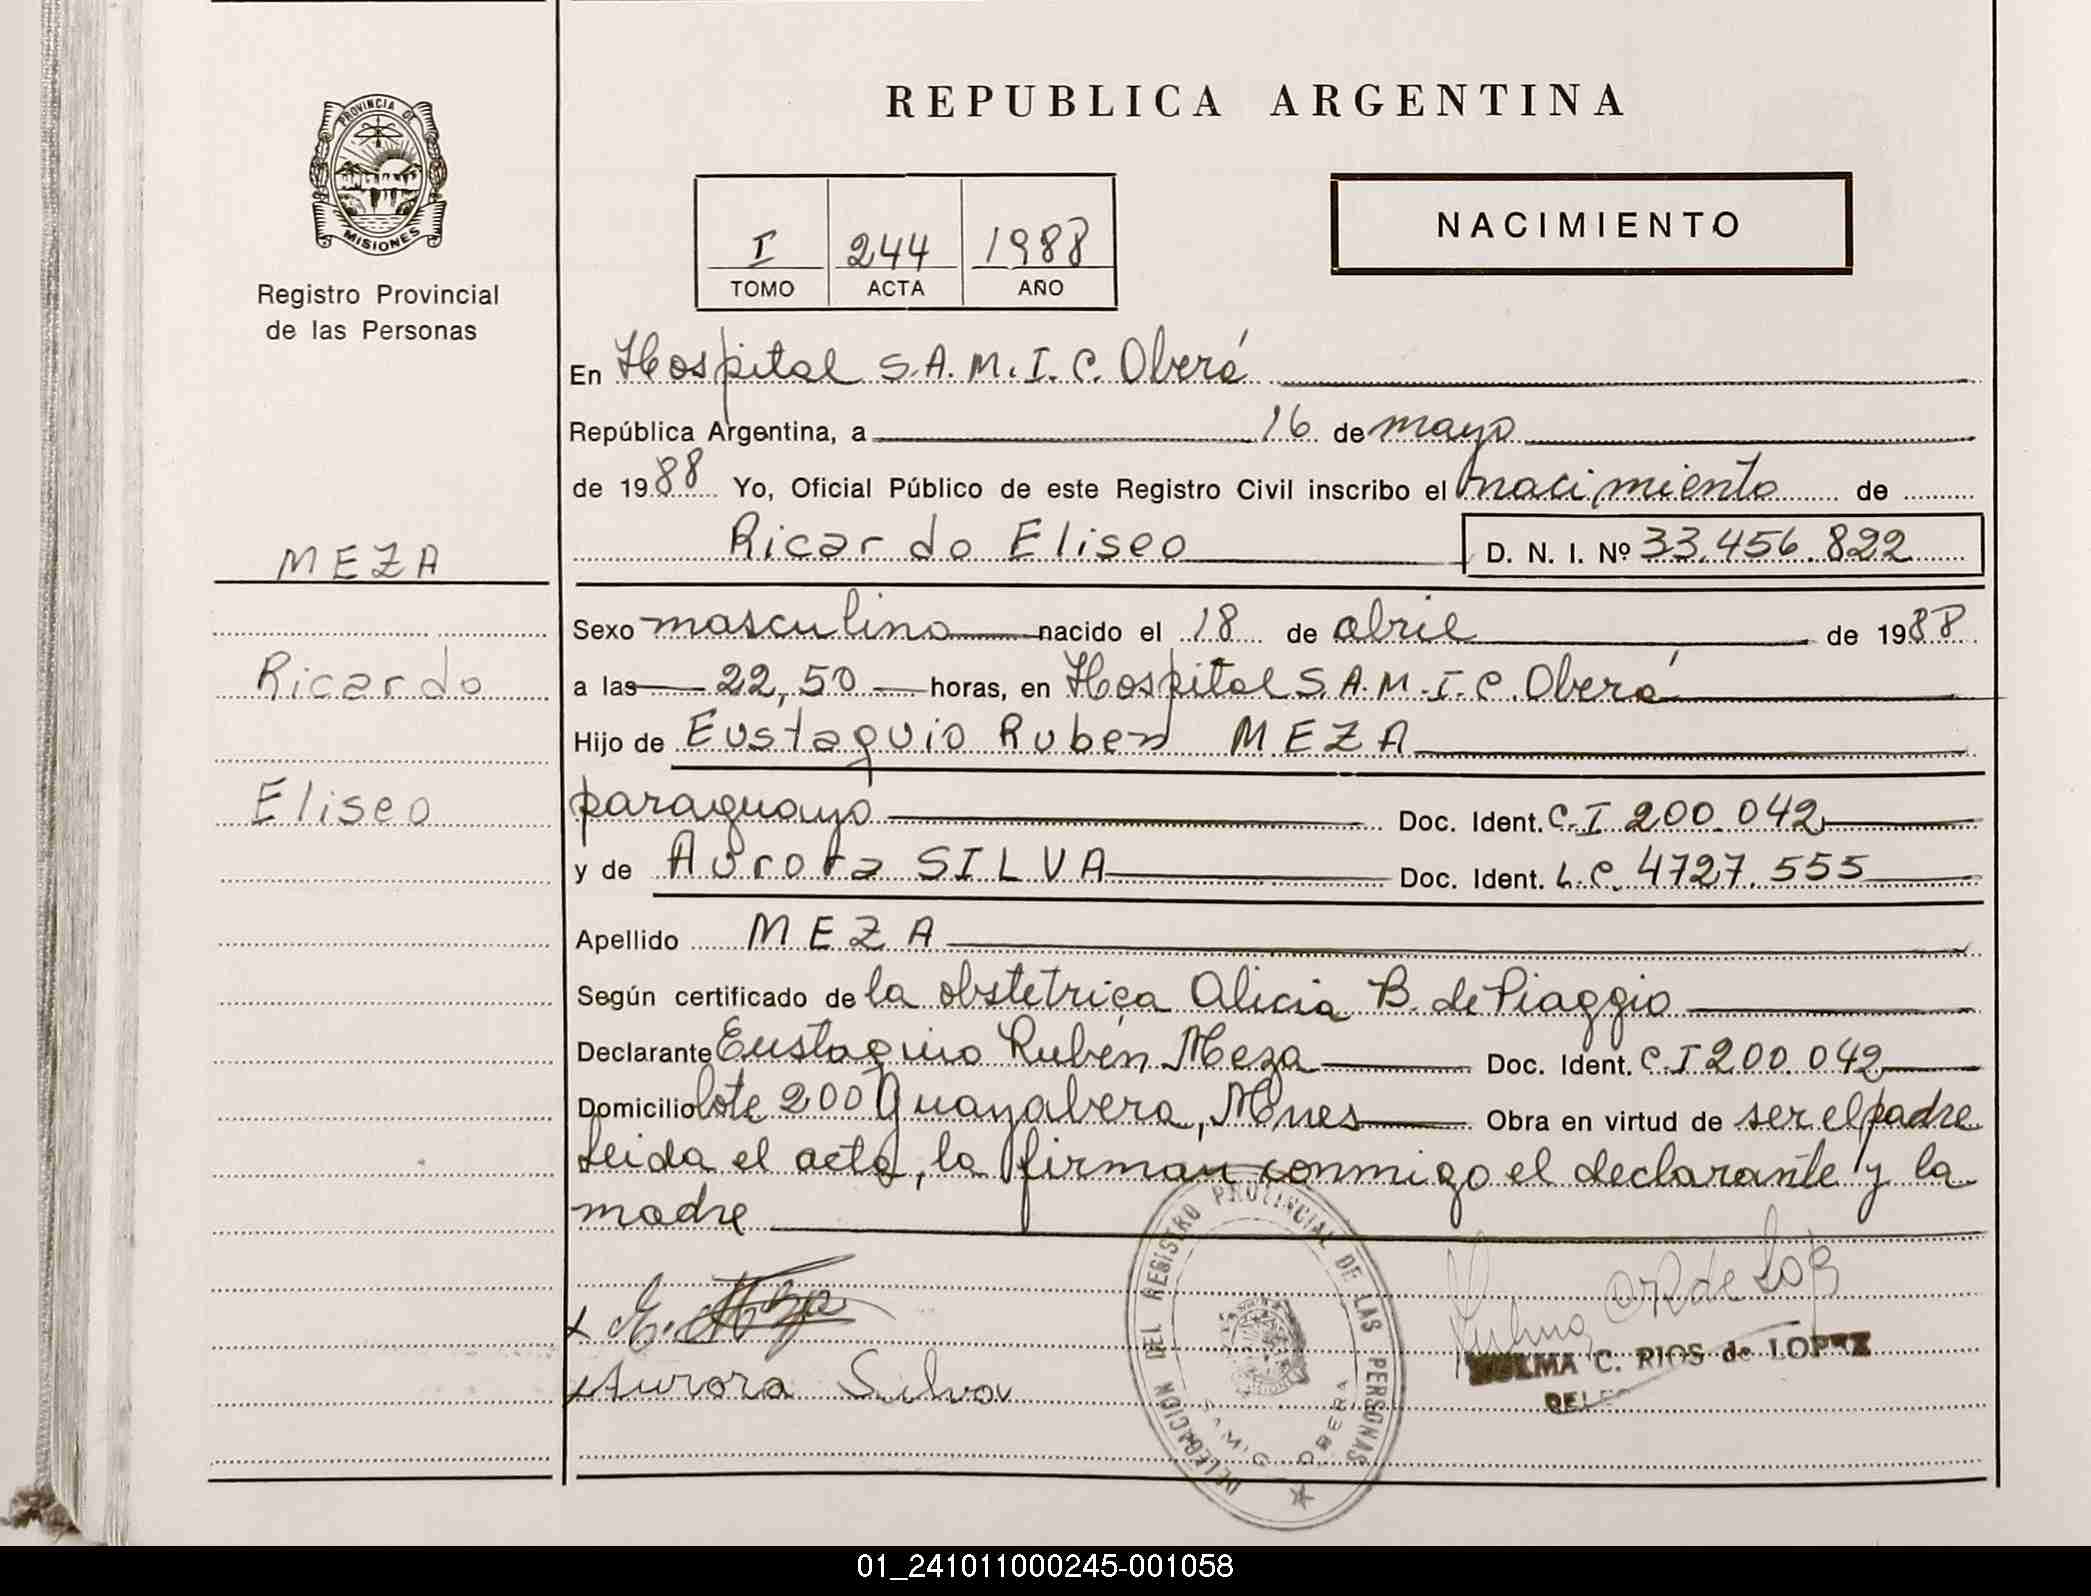 REPUBLICA ARGENTINA
PROVINCIA DE
MISIONES
Registro Provincial
de las Personas
NACIMIENTO
I 244 1988
TOMO ACTA AÑO
En Hospital S.A.M.I.C. Oberá
República Argentina, a 16 de mayo
de 1988 Yo, Oficial Público de este Registro Civil inscribo el nacimiento de
Ricardo Eliseo D. N. I. Nº 33.456.822
MEZA
Ricardo
Eliseo
Sexo masculino nacido el 18 de abril de 1988
a las 22,50 horas, en Hospital S.A.M.I.C. Oberá
Hijo de Eustaquio Ruben MEZA
paraguayo Doc. Ident. C.I 200.042
y de Aurora SILVA Doc. Ident. L.C. 4727.555
Apellido MEZA
Según certificado de la obstetrica Alicia B. de Piaggio
Declarante Eustaquio Rubén Meza Doc. Ident. C.I 200.042
Domicilio lote 200 Guayabera, Mnes Obra en virtud de ser el padre
Leida el acta, la firman conmigo el declarante y la
madre
E. Meza
Aurora Silva
DELEGACION DEL REGISTRO PROVINCIAL DE LAS PERSONAS
S.A.M.I.C. OBERA
C. RIOS de LOPEZ
01_241011000245-001058